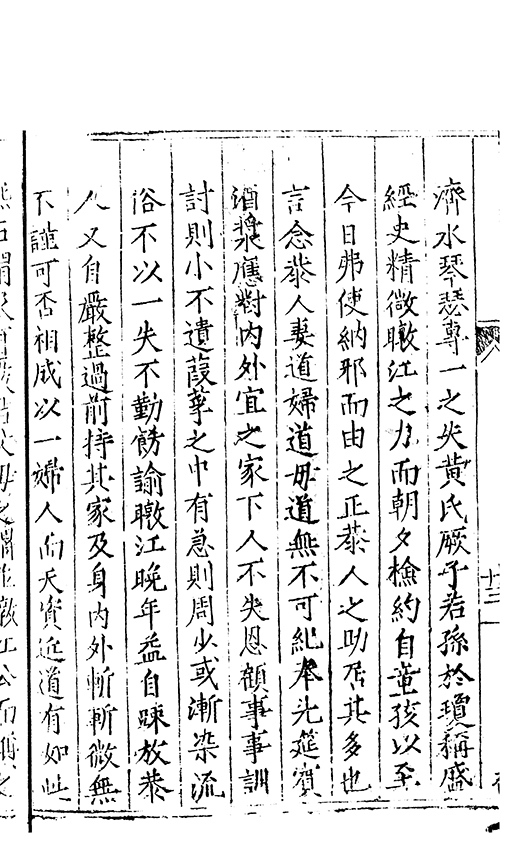 濟水琴瑟專一之失黃氏厥子若孫於瓊稱盛
經史精微暾江之力而朝夕檢約自童孩以至
今日弗使納邪而由之正恭人之助居其多也
言念恭人妻道婦道毋道無不可紀奉先筵賓
酒漿應對內外宜之家下人不失恩顧事事訓
討則小不遺葭莩之中有急則周少或漸染流
俗不以一失不勤餝諭暾江晚年益自踈放恭
人又自嚴整過前持其家及身內外斬斬微無
不謹可否相成以一婦人而天資近道有如此
十三